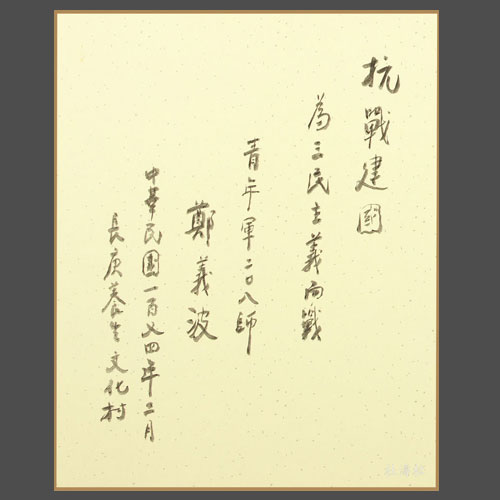 抗戰建國
為三民主義而戰
青年軍二〇八師
鄭義波
中華民國一百〇四年二月
長庚養生文化村